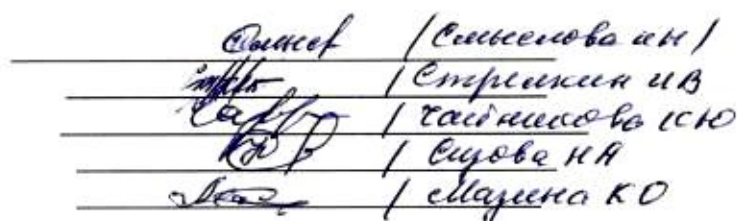 / Смыслова ИН /
/ Стрелкин ИВ
/ Чайникова КЮ
/ Сизова НА
/ Мазина КО